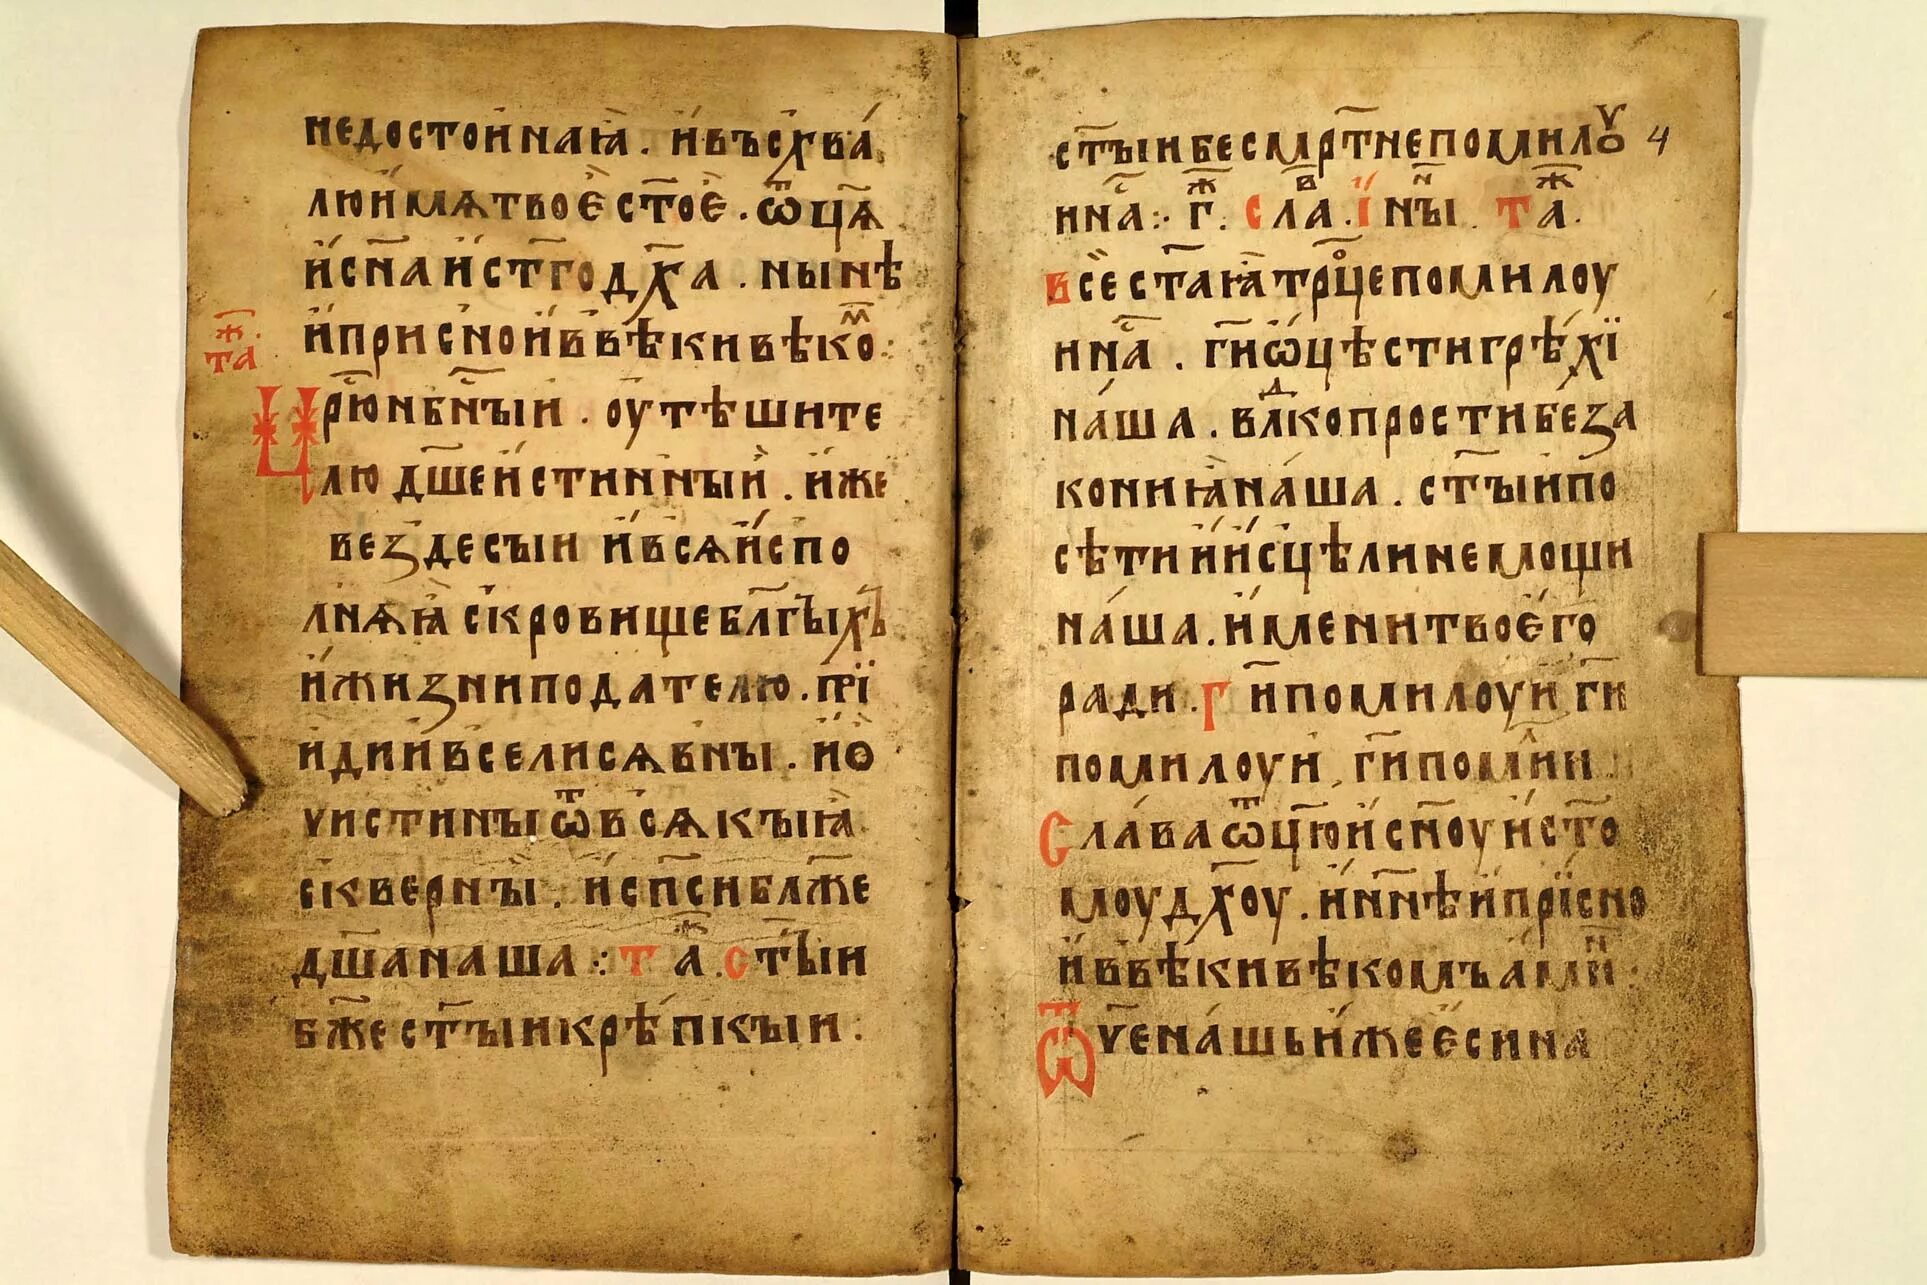 недостоинаꙗ . и въсхва
лю имѧ твое ст҃ое . ѿц҃ѧ
и сн҃а и ст҃го дх҃а . нынѣ
и присно и в вѣки вѣкоⷨ :
жⷤ
та
Цр҃ю нбⷭ҇ныи . оутѣшите
лю дш҃е истинныи . иже
вездесыи и всѧ испо
лнѧꙗ скровище бл҃гыхъ
и жизни подателю . прї
иди и вселисѧ в ны . и ѻ
чисти ны ѿ всѧкыꙗ
скверны . и сп҃си бл҃же
дш҃а наша : таⷤ . ст҃ыи
бж҃е ст҃ыи крѣпкыи :
ст҃ыи бесмрт҃не помилѹ 4
и наⷭ : гⷤ . слаⷡ . ї нⷩ҇ы . таⷤ .
все ст҃аꙗ трⷪ҇це помилоу
и наⷭ . ги҃ ѡцѣсти грѣхї
наша . влⷣко прости безза
кониꙗ наша . ст҃ыи по
сѣти и исцѣли немощи
наша . имени твоего
ради . ги҃ помилоуи ги҃
помилоуи , ги҃ помлⷧ҇и
Слава ѿц҃ю и сн҃оу и ст҃о
моу дх҃оу . и нн҃ѣ и прїсно
и в вѣки вѣкомъ амиⷩ :
Ѿче нашь иже еси на